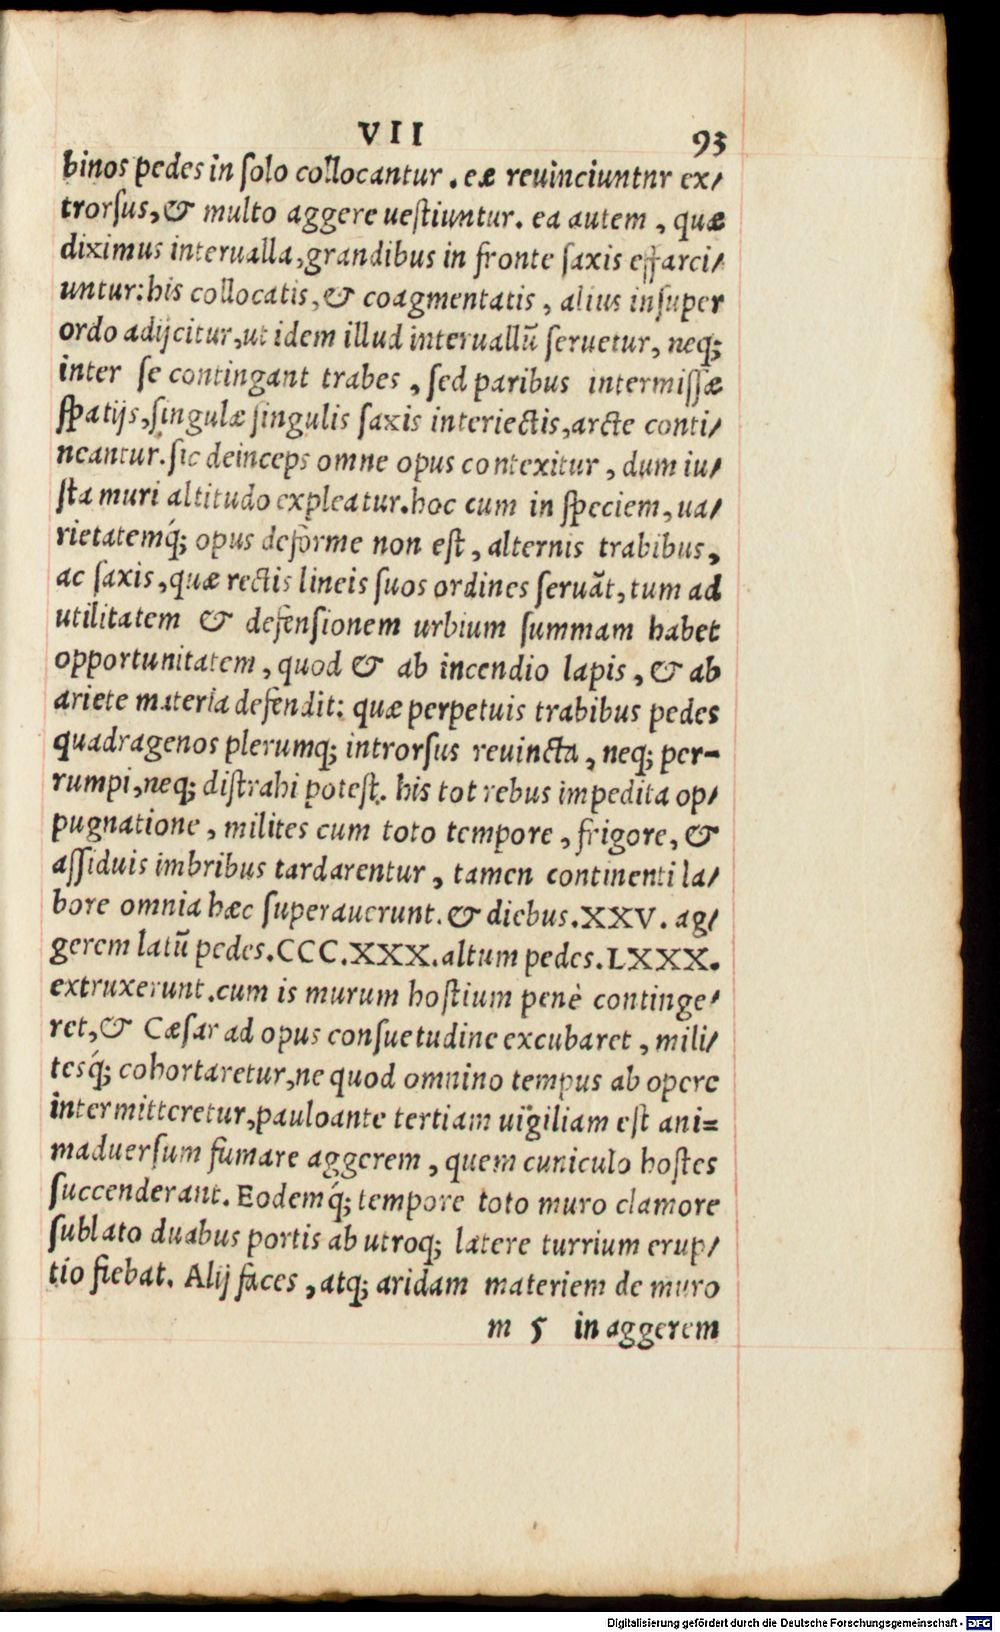 VII 93
binos pedes in ſolo collocantur. eæ reuinciuntnr ex/
trorſus, & multo aggere ueſtiuntur. ea autem, quæ
diximus interualla, grandibus in fronte ſaxis effarci/
untur: his collocatis, & coagmentatis, alius inſuper
ordo adijcitur, ut idem illud interuallũ ſeruetur, neq;
inter ſe contingant trabes, ſed paribus intermiſſæ
ſpatijs, ſingulæ ſingulis ſaxis interiectis, arcte conti/
neantur. ſic deinceps omne opus contexitur, dum iu/
ſta muri altitudo expleatur. hoc cum in ſpeciem, ua/
rietatemq́; opus deforme non eſt, alternis trabibus,
ac ſaxis, quæ rectis lineis ſuos ordines ſeruãt, tum ad
utilitatem & defenſionem urbium ſummam habet
opportunitatem, quod & ab incendio lapis, & ab
ariete materia defendit: quæ perpetuis trabibus pedes
quadragenos plerumq; introrſus reuincta, neq; per-
rumpi, neq; diſtrahi poteſt. his tot rebus impedita op/
pugnatione, milites cum toto tempore, frigore, &
aſſiduis imbribus tardarentur, tamen continenti la/
bore omnia hæc ſuperauerunt. & diebus. XXV. ag/
gerem latũ pedes. CCC. XXX. altum pedes. LXXX.
extruxerunt. cum is murum hoſtium penè continge/
ret, & Cæſar ad opus conſuetudine excubaret, mili/
tesq́; cohortaretur, ne quod omnino tempus ab opere
intermitteretur, pauloante tertiam uigiliam eſt ani=
maduerſum fumare aggerem, quem cuniculo hoſtes
ſuccenderant. Eodemq́; tempore toto muro clamore
ſublato duabus portis ab utroq; latere turrium erup/
tio fiebat. Alij faces, atq; aridam materiem de muro
m 5 in aggerem
Digitalisierung gefördert durch die Deutsche Forschungsgemeinschaft - DFG